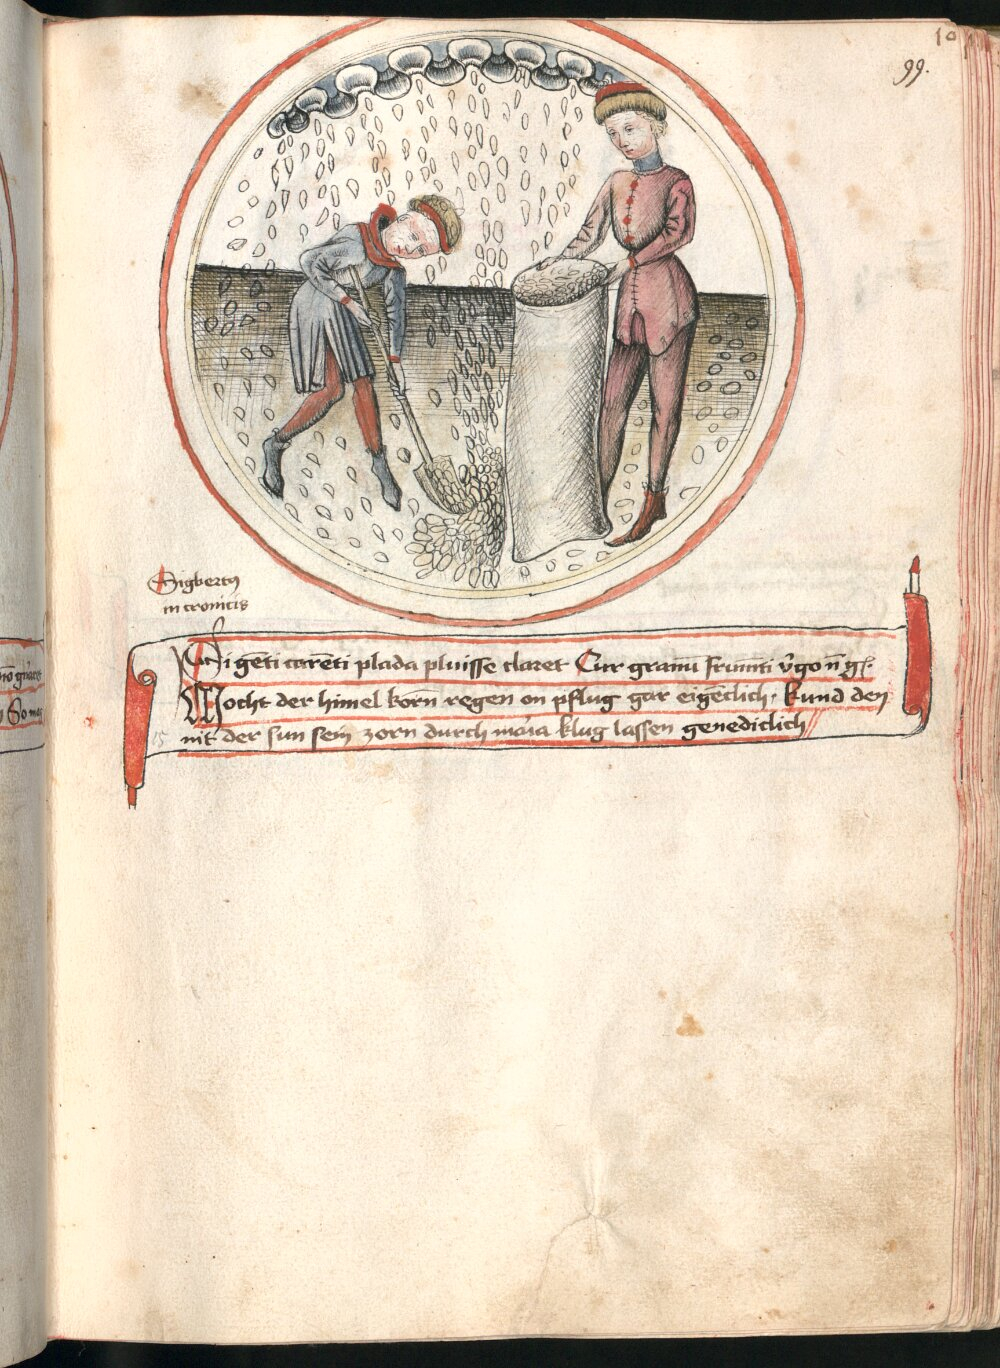 10
99.
Sigbertꝯ
in cronicis
Si gēti carēti plada pluisse claret Cur granū frumīti v̄go n̄ gn̄et
Mocht der himel korn regen on pflug gar eigētlich, kund den
nit der sun sein zorn durch maria klug lassen genediclich
15